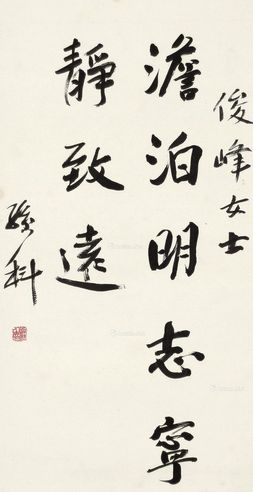 俊峰女士
澹泊明志寧
靜致遠
孫科